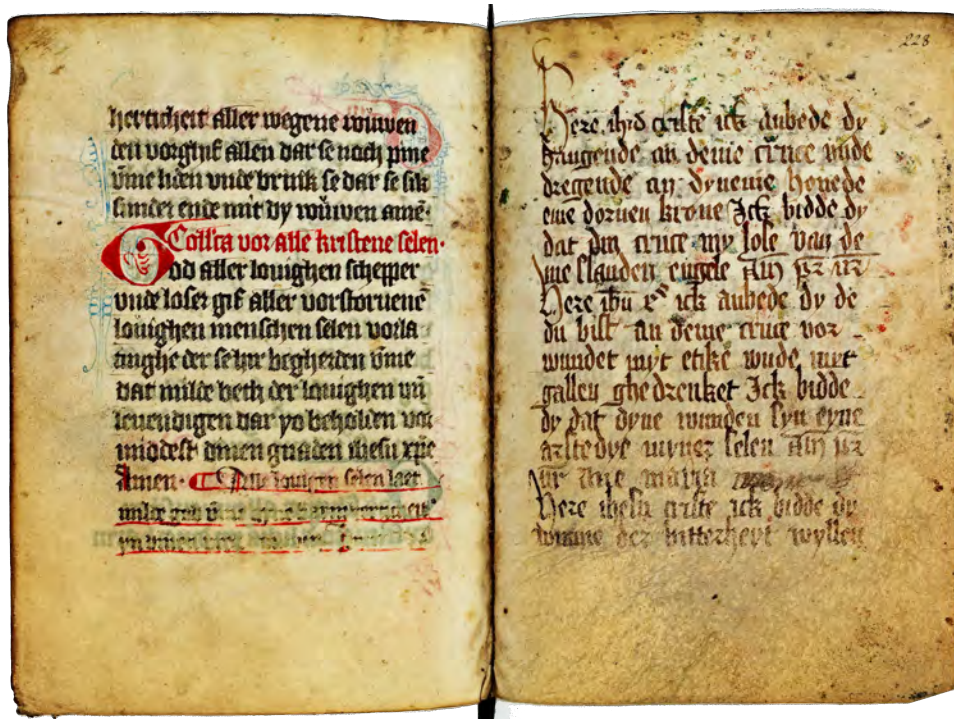 herticheit aller wegene wuwen
den vorghif allen dar se noch pine
vme liden vnde brink se dar se sik
sunder ende mit dy vrůwen amē·
Collcta vor alle kristene selen·
God aller louighen schepper
vnde loser gif aller vorstoruenē
louighen menschen selen vorla
tinghe der se hir begherden vme
dat milde beth der louighen vn̄
leuendigen dar yo beholden vor
middest dinen gnaden ihesu xp̄e
Amen· Alle louigen selen laet
milde god
228
Here ih̄s criste ick anbede dy
hangende an deme cruce vnde
dregende an dyneme houede
eine dornen krone Ick bidde dy
dat din cruce my lose van de
me slanden engele Am̄ pr̄ nr̄
Here ihū xp̄e ick anbede dy de
du bist an deme cruce vor
wundet myt etike vnde myt
gallen ghedrenket Ick bidde
dy dat dyne wunden syn eyne
arstedye myner selen Am̄ pr̄
nr̄ Aue maria
Here ihesu criste ick bidde dy
vmme der bitterheyt wyllen